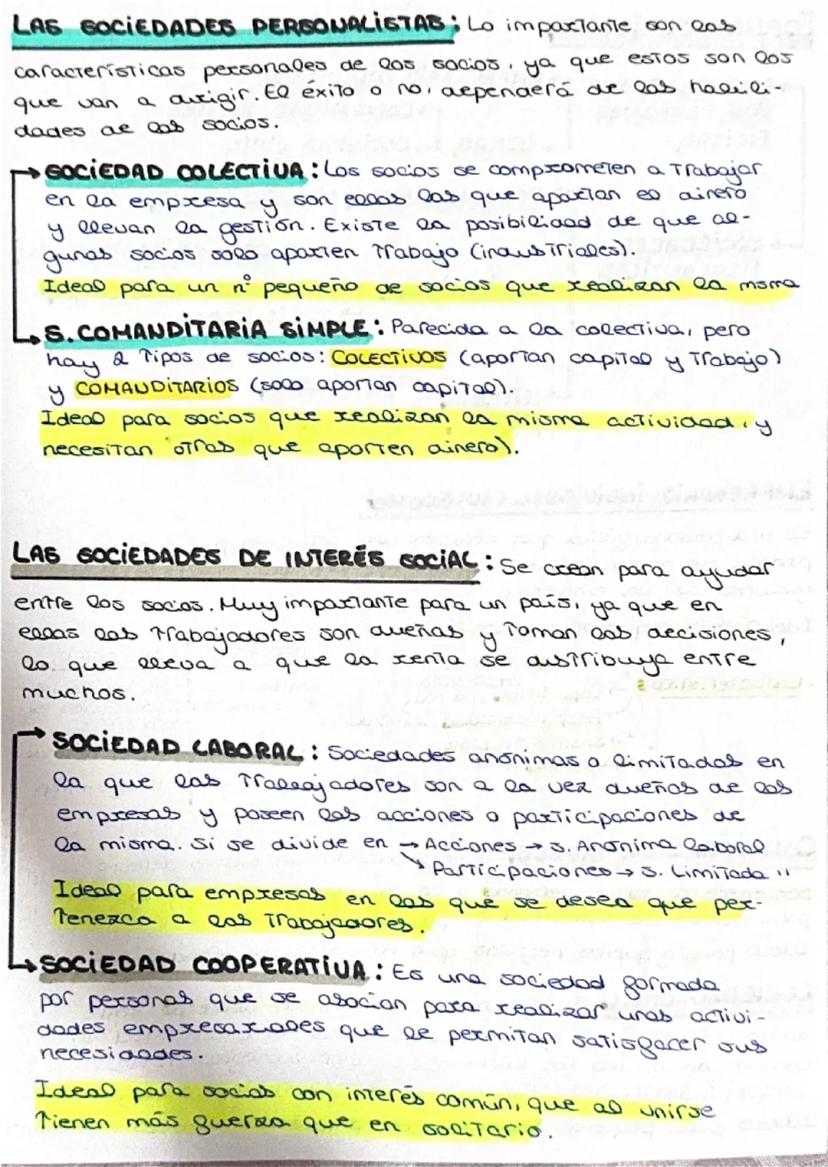 LAS SOCIEDADES PERSONALISTAS: Lo importante son las
características personales de los socios, ya que estos son los
que van a dirigir. El éxito o no, dependerá de las habili-
dades de los socios.
→ SOCIEDAD COLECTIVA: Los socios se comprometen a trabajar
en la empresa y son ellos los que aportan el dinero
y llevan la gestión. Existe la posibilidad de que al-
gunos socios solo aporten trabajo (industriales).
Ideal para un nº pequeño de socios que realizan la misma
→ S. COMANDITARIA SIMPLE: Parecida a la colectiva, pero
hay 2 tipos de socios: COLECTIVOS (aportan capital y trabajo)
y COMANDITARIOS (solo aportan capital).
Ideal para socios que realizan la misma actividad, y
necesitan otros que aporten dinero).
LAS SOCIEDADES DE INTERÉS SOCIAL: Se crean para ayudar
entre los socios. Muy importante para un país, ya que en
ellas los trabajadores son dueños y toman las decisiones,
lo que lleva a que la renta se distribuya entre
muchos.
→ SOCIEDAD LABORAL: Sociedades anónimas o limitadas en
la que los trabajadores son a la vez dueños de las
empresas y poseen las acciones o participaciones de
la misma. Si se divide en → Acciones → S. Anónima laboral
→ Participaciones → S. Limitada "
Ideal para empresas en las que se desea que per-
tenezca a los trabajadores.
→ SOCIEDAD COOPERATIVA: Es una sociedad formada
por personas que se asocian para realizar unas activi-
dades empresariales que le permitan satisfacer sus
necesidades.
Ideal para socios con interés común, que al unirse
tienen más fuerza que en solitario.